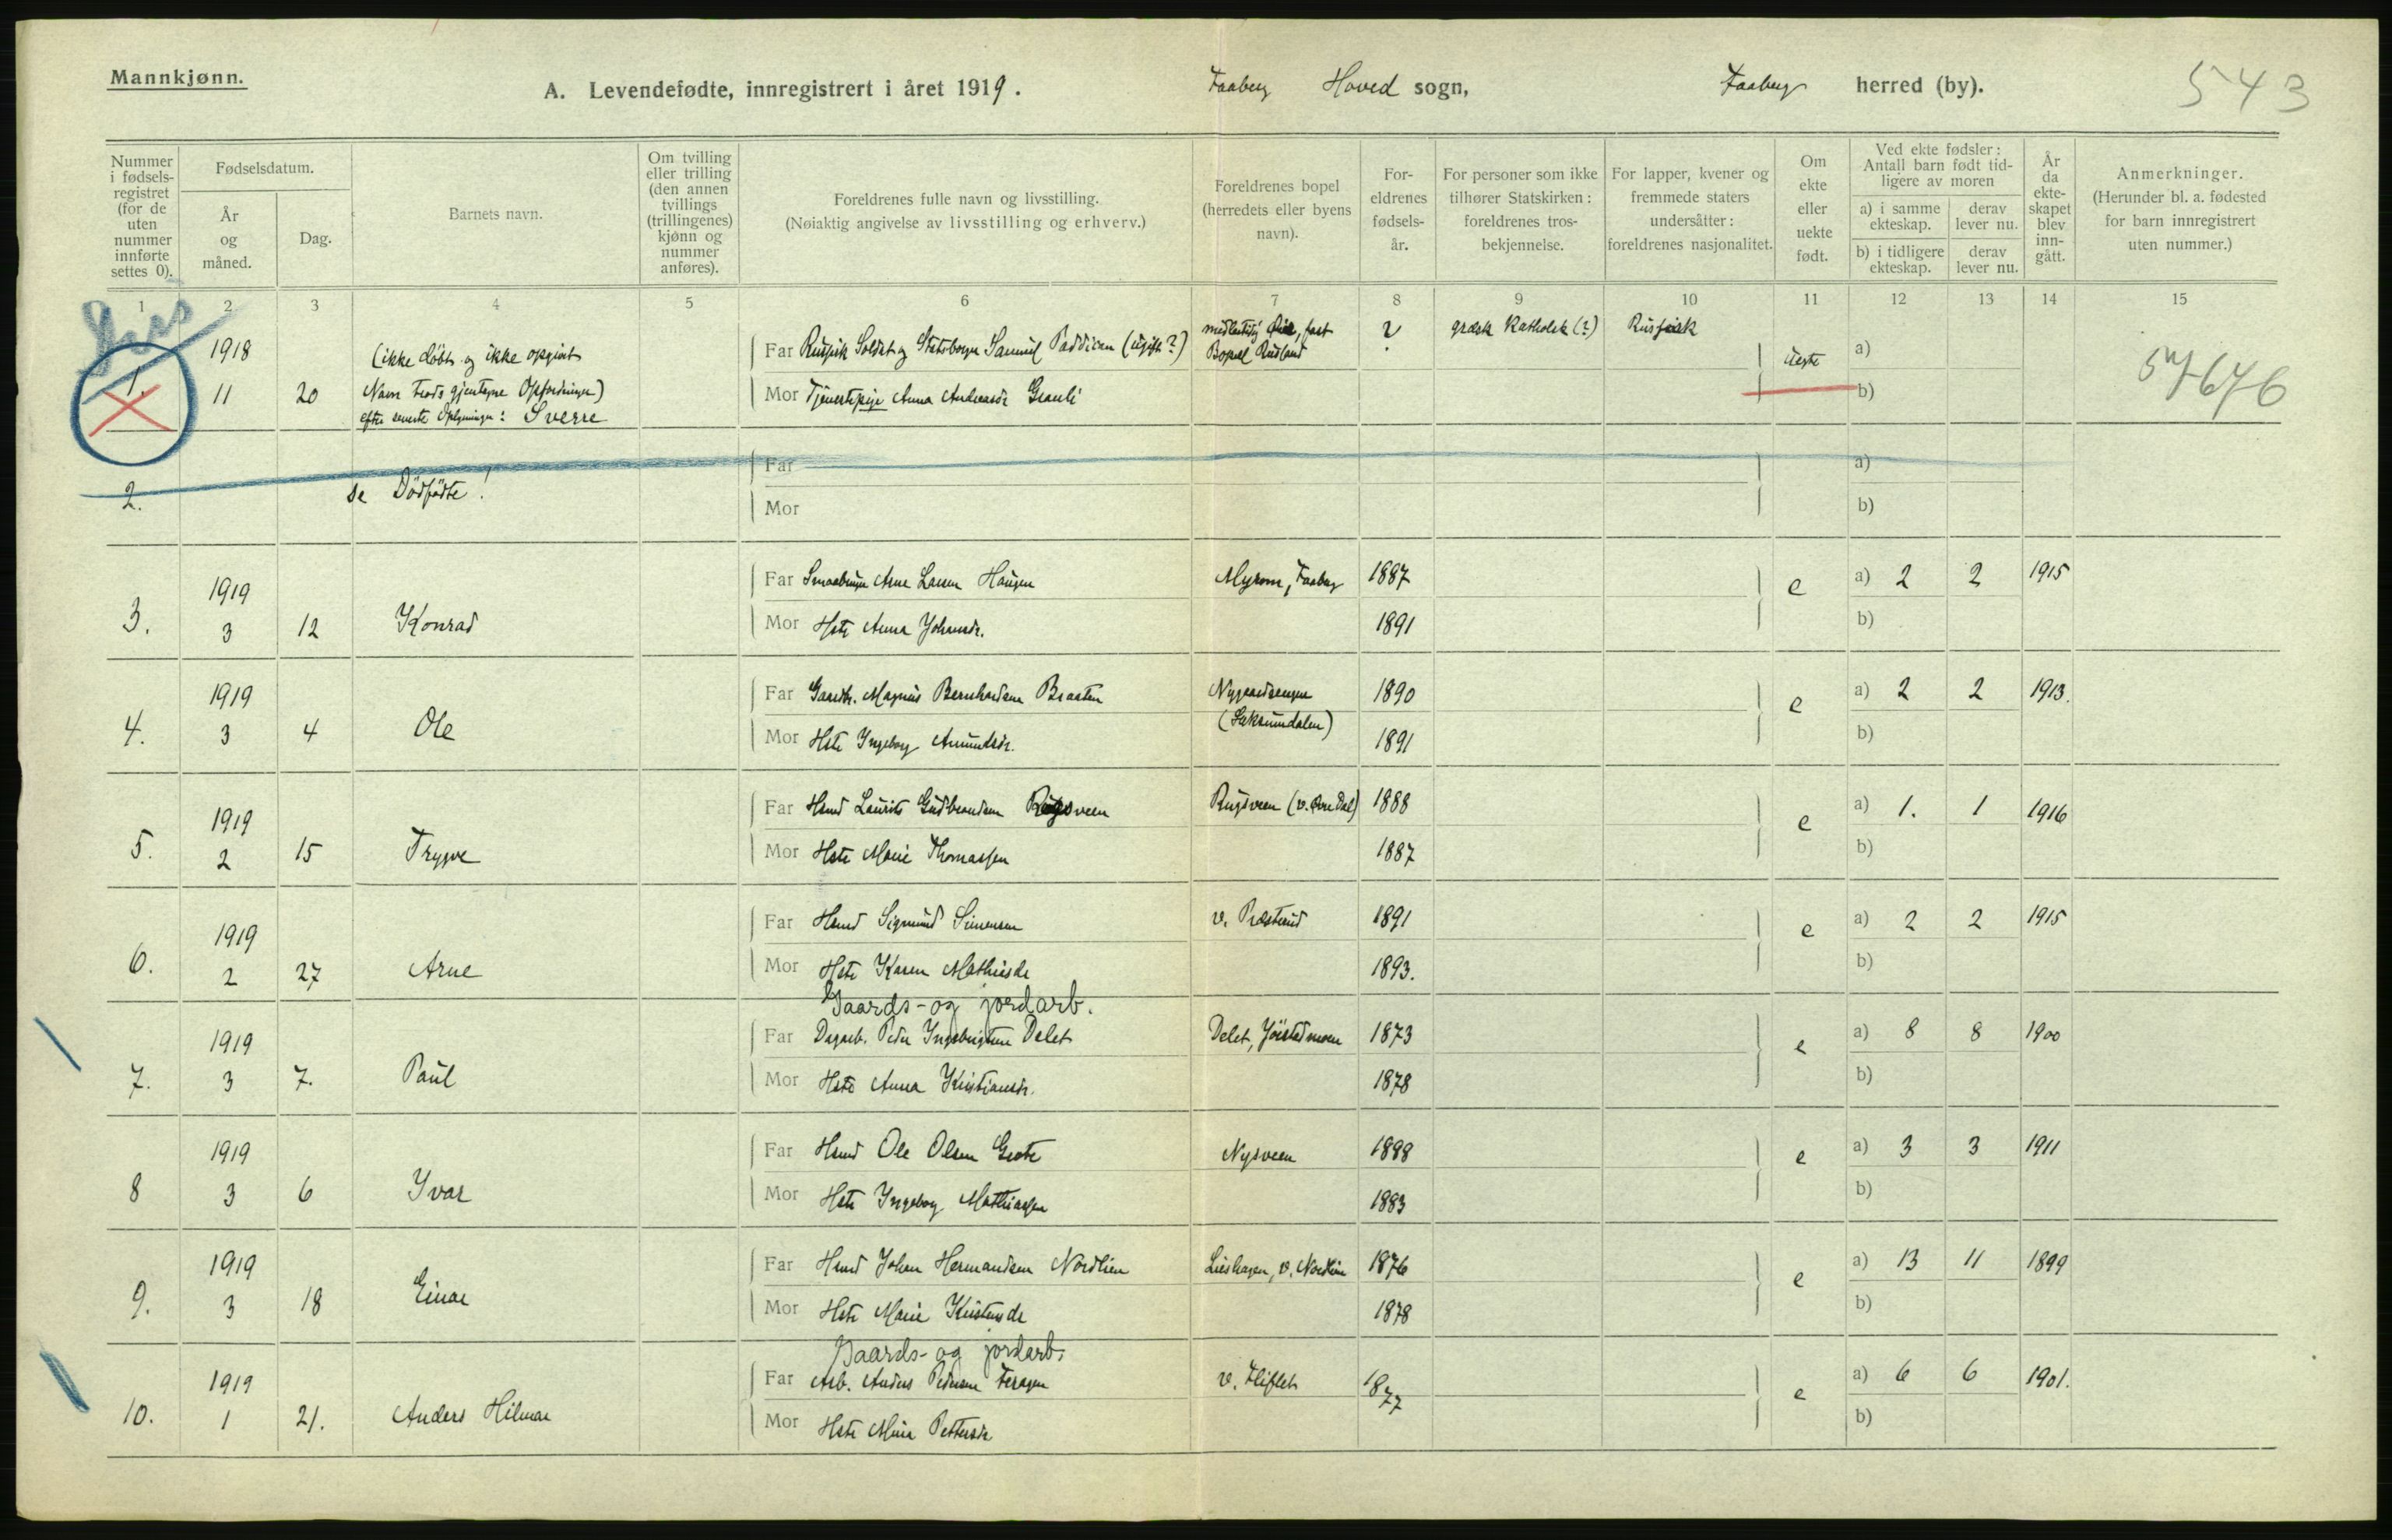 Mannkjønn.
A. Levendefødte, innregistrert i året 1919.
Faaberg Hoved sogn,
Faaberg herred (by).
543
Nummer i fødsels-registret (for de uten nummer innførte settes 0).
Fødselsdatum.
År og måned.
Dag.
Barnets navn.
Om tvilling eller trilling (den annen tvillings (trillingenes) kjønn og nummer anføres).
Foreldrenes fulle navn og livsstilling.
(Nøiaktig angivelse av livsstilling og erhverv.)
Foreldrenes bopel (herredets eller byens navn).
For-eldrenes fødsels-år.
For personer som ikke tilhører Statskirken: foreldrenes tros-bekjennelse.
For lapper, kvener og fremmede staters undersåtter: foreldrenes nasjonalitet.
Om ekte eller uekte født.
Ved ekte fødsler: Antall barn født tid-ligere av moren
a) i samme ekteskap.
derav lever nu.
b) i tidligere ekteskap.
derav lever nu.
År da ekte-skapet blev inn-gått.
Anmerkninger.
(Herunder bl. a. fødested for barn innregistrert uten nummer.)
1 2 3 4 5 6 7 8 9 10 11 12 13 14 15
1. 1918 11 20
(ikke døbt og ikke opgivet
Navn trods gjentagne Opfordringer)
efter seneste Oplysninger: Sverre
Far Russisk Soldat og Statsborger Samuel Paddican (ugift?)
midlertidig, fast
Bopæl Rusland
? græsk Katholsk (?) Russisk
Mor Tjenestepige Anna Andreasdr Granli
uekte a)
b)
57676
2. se Dødfødte!
Far a)
Mor b)
3. 1919 3 12 Konrad
Far Smaabruger Arne Larsen Haugen Myrom, Faaberg 1887 e a) 2 2 1915
Mor Hstr Anna Johansdr. 1891 b)
4. 1919 3 4 Ole
Far Gaardbr. Magnus Bernhardsen Braaten Nygaardsengen 1890 e a) 2 2 1913.
(Saksumdalen)
Mor Hstr Ingeborg Amundsdr. 1891 b)
5. 1919 2 15 Trygve
Far Hsmd Laurits Gudbrandsen Rugsveen Rugsveen (v. Øvre Dal) 1888 e a) 1. 1 1916
Mor Hstr Marie Thomassen 1887 b)
6. 1919 2 27 Arne
Far Hsmd Sigmund Simensen v. Præstrud 1891 e a) 2 2 1915
Mor Hstr Karen Mathisdr 1893. b)
Gaards- og jordarb.
7. 1919 3 7. Paul
Far Dagarb. Peder Ingebrigtsen Delet Delet, Jørstadmoen 1873 e a) 8 8 1900
Mor Hstr Anna Kristiansdr. 1878 b)
8 1919 3 6 Yvar
Far Hsmd Ole Olsen Grote Nysveen 1888 e a) 3 3 1911
Mor Hstr Ingeborg Mathiassen 1883 b)
9. 1919 3 18 Einar
Far Hsmd Johan Hermandsen Nordlien Lieshagen, v. Nordlien 1876 e a) 13 11 1899
Mor Hstr Marie Kristensdr 1878 b)
Gaards- og jordarb.
10. 1919 1 21. Anders Hilmar
Far Arb. Anders Pedersen v. Fliflet 1877 e a) 6 6 1901.
Mor Hstr Mina Pettersdr b)